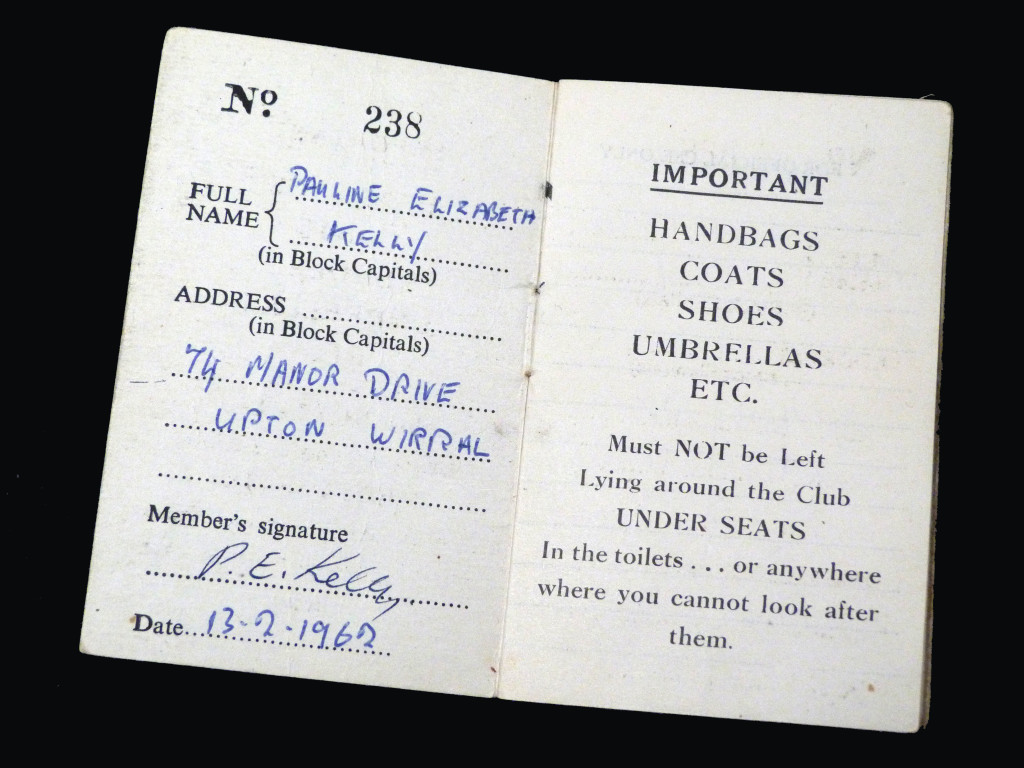 Nº 238
FULL NAME { PAULINE ELIZABETH
KELLY
(in Block Capitals)
ADDRESS
(in Block Capitals)
74 MANOR DRIVE
UPTON WIRRAL
Member's signature
P. E. Kelly
Date 13-2-1962
IMPORTANT
HANDBAGS
COATS
SHOES
UMBRELLAS
ETC.
Must NOT be Left
Lying around the Club
UNDER SEATS
In the toilets . . . or anywhere
where you cannot look after
them.